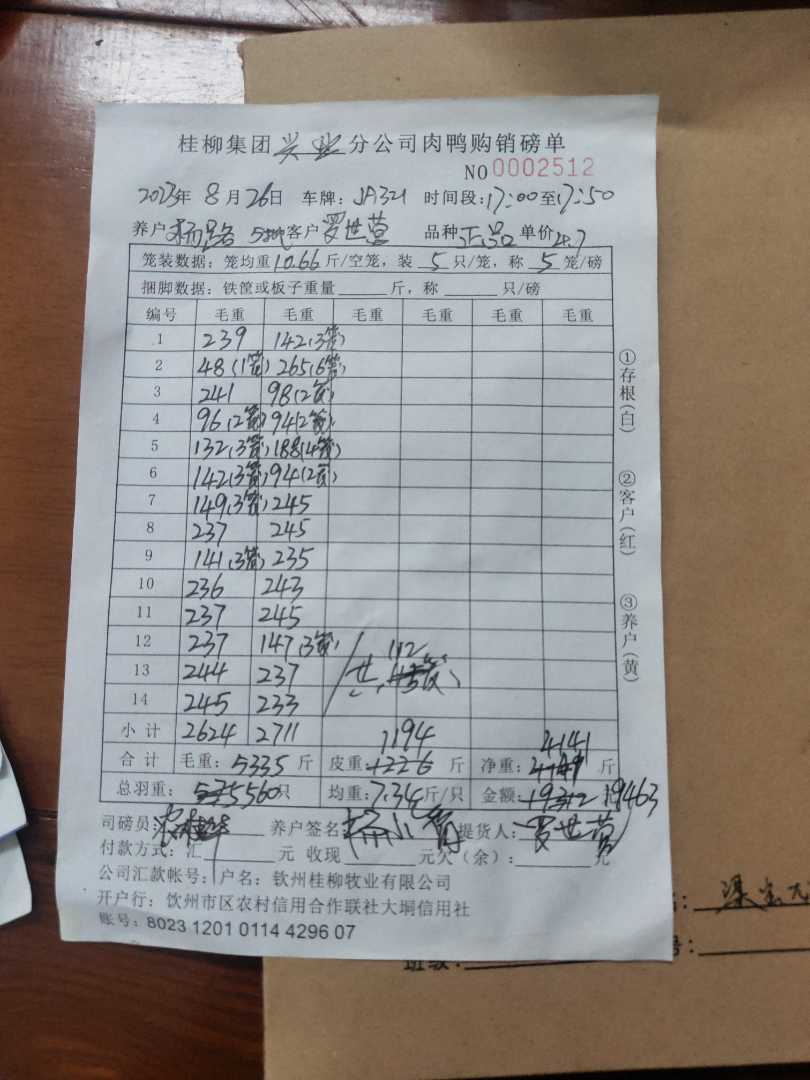 桂柳集团兴业分公司肉鸭购销磅单
NO 0002512
2023年 8月26日 车牌：JA321 时间段：17:00至17:50
养户 杨 客户 罗世营 品种 正品 单价 4.7
笼装数据：笼均重10.66斤/空笼，装 5 只/笼，称 5 笼/磅
捆脚数据：铁筐或板子重量 斤，称 只/磅
编号 毛重 毛重 毛重 毛重 毛重 毛重
1 239 142(3笼)
2 48(1笼) 265(6笼)
3 241 98(2笼)
4 96(2笼) 94(2笼)
5 132(3笼) 188(4笼)
6 142(3笼) 94(2笼)
7 149(3笼) 245
8 237 245
9 141(3笼) 235
10 236 243
11 237 245
12 237 147(3笼) 112
13 244 237 共 笼
14 245 233
小计 2624 2711 1194 4141
合计 毛重：5335斤 皮重：1226 斤 净重： 斤
总羽重： 560只 均重：7.39斤/只 金额：19312 19463
司磅员： 养户签名 杨 提货人：罗世营
付款方式：汇 元 收现 元欠（余）： 元
公司汇款帐号：户名：钦州桂柳牧业有限公司
开户行：饮州市区农村信用合作联社大垌信用社
账号：8023 1201 0114 4296 07
①存根（白）
②客户（红）
③养户（黄）
班级：